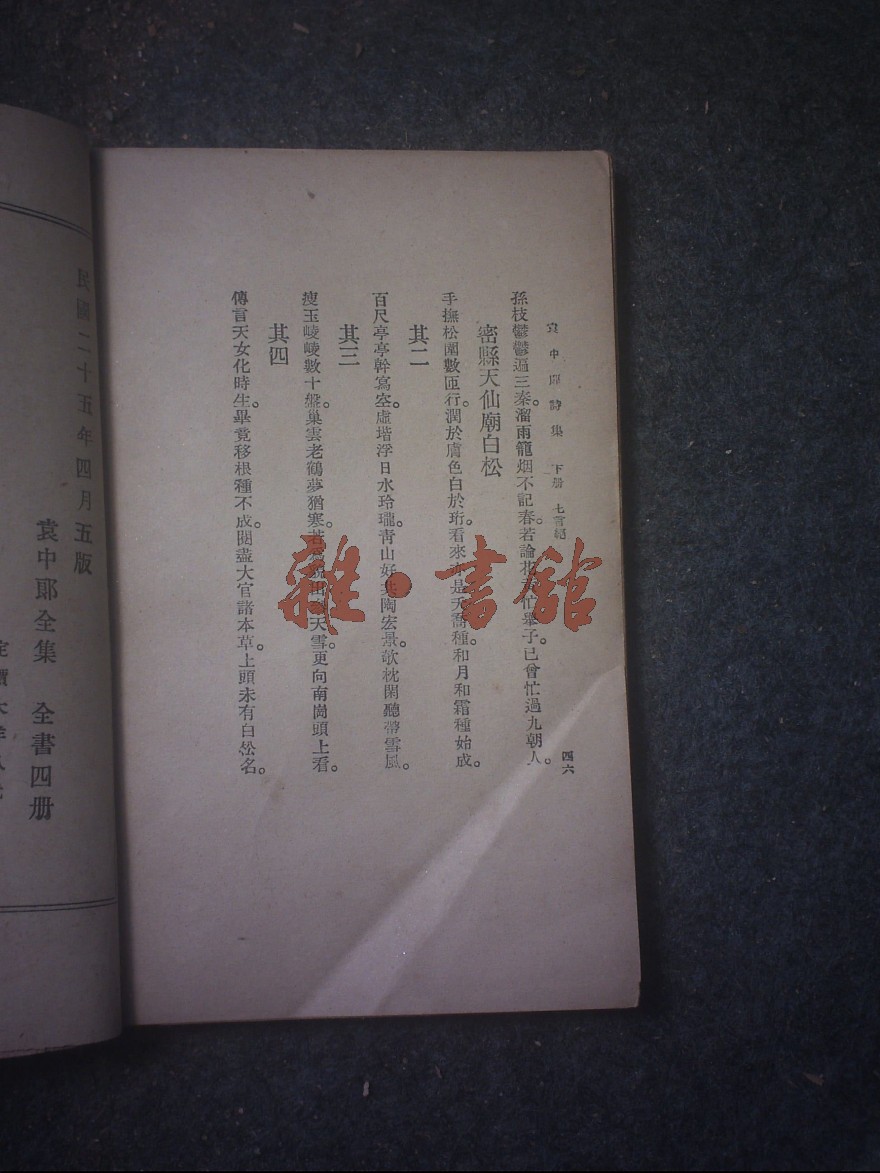 袁中郎詩集 下册 七言絕 四六
孫枝鬱鬱遍三秦。溜雨籠烟不記春。若論 忙舉子。已曾忙過九朝人。
密縣天仙廟白松
手撫松圍數匝行。潤於膚色白於珩。看來亦是天喬種。和月和霜種始成。
其二
百尺亭亭幹寫空。虛堦浮日水玲瓏。青山好共陶宏景。欹枕閑聽帶雪風。
其三
瘦玉崚崚數十盤。巢雲老鶴夢猶寒。天雪。更向南崗頭上看。
其四
傳言天女化時生。畢竟移根種不成。閱盡大官諸本草。上頭未有白松名。
雜·書舘
民國二十五年四月五版
袁中郎全集 全書四册
定價大洋